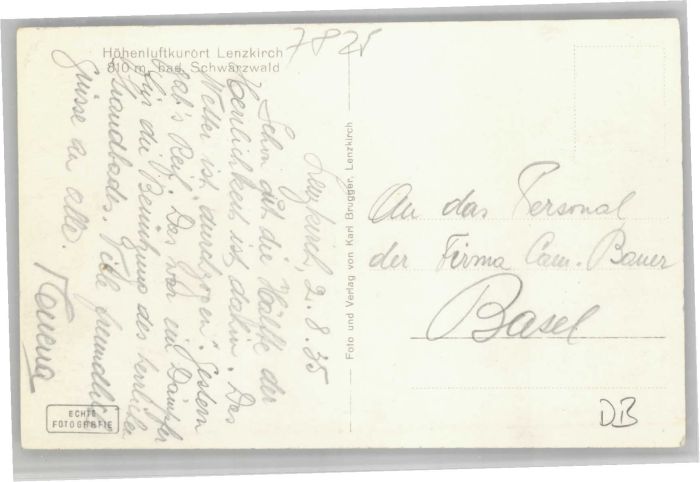 Höhenluftkurort Lenzkirch
810 m, bad. Schwarzwald
7825
Lenzkirch, 2.8.35
Schon ist die Hälfte der
Herrlichkeit ist dahin. Das
Wetter ist "durchzogen". Gestern
gab's Reif. Das war ein Dämpfer
für die Benützung des herrlichen
Strandbades. Viele freundliche
Grüsse an alle.
Foto und Verlag von Karl Brugger, Lenzkirch
An das Personal
der Firma Cam. Bauer
Basel
ECHTE
FOTOGRAFIE
DB